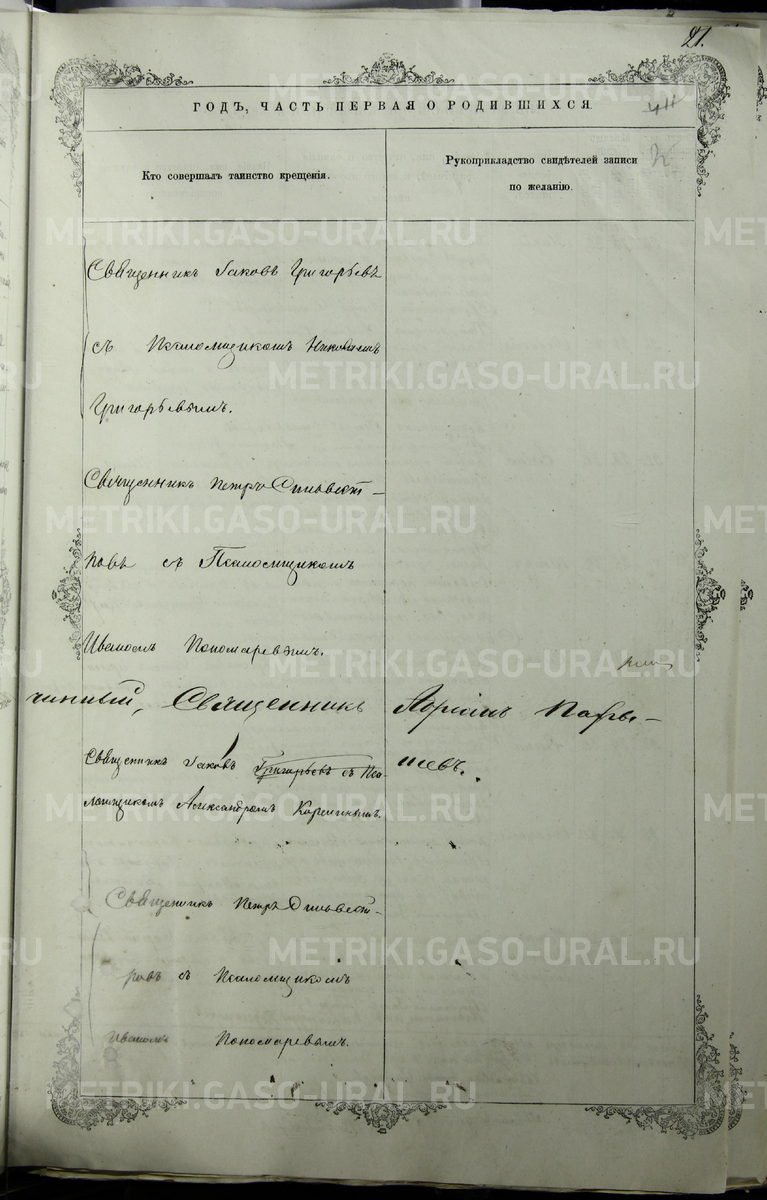 27.
ГОДЪ, ЧАСТЬ ПЕРВАЯ О РОДИВШИХСЯ.
Кто совершалъ таинство крещенія.
Рукоприкладство свидѣтелей записи
по желанію.
Священникъ Іаковъ Григорьевъ
съ Псаломщикомъ
Григорьевымъ.
Священникъ Петръ Сильвест-
ровъ съ Псаломщикомъ
Иваномъ Пономаревымъ.
чинный, Священникъ Адріанъ
Священникъ Іаковъ Григорьевъ съ Пса-
ломщикомъ Александромъ
Священникъ Петръ Сильвест-
ровъ съ Псаломщикомъ
Иваномъ Пономаревымъ.
METRIKI.GASO-URAL.RU